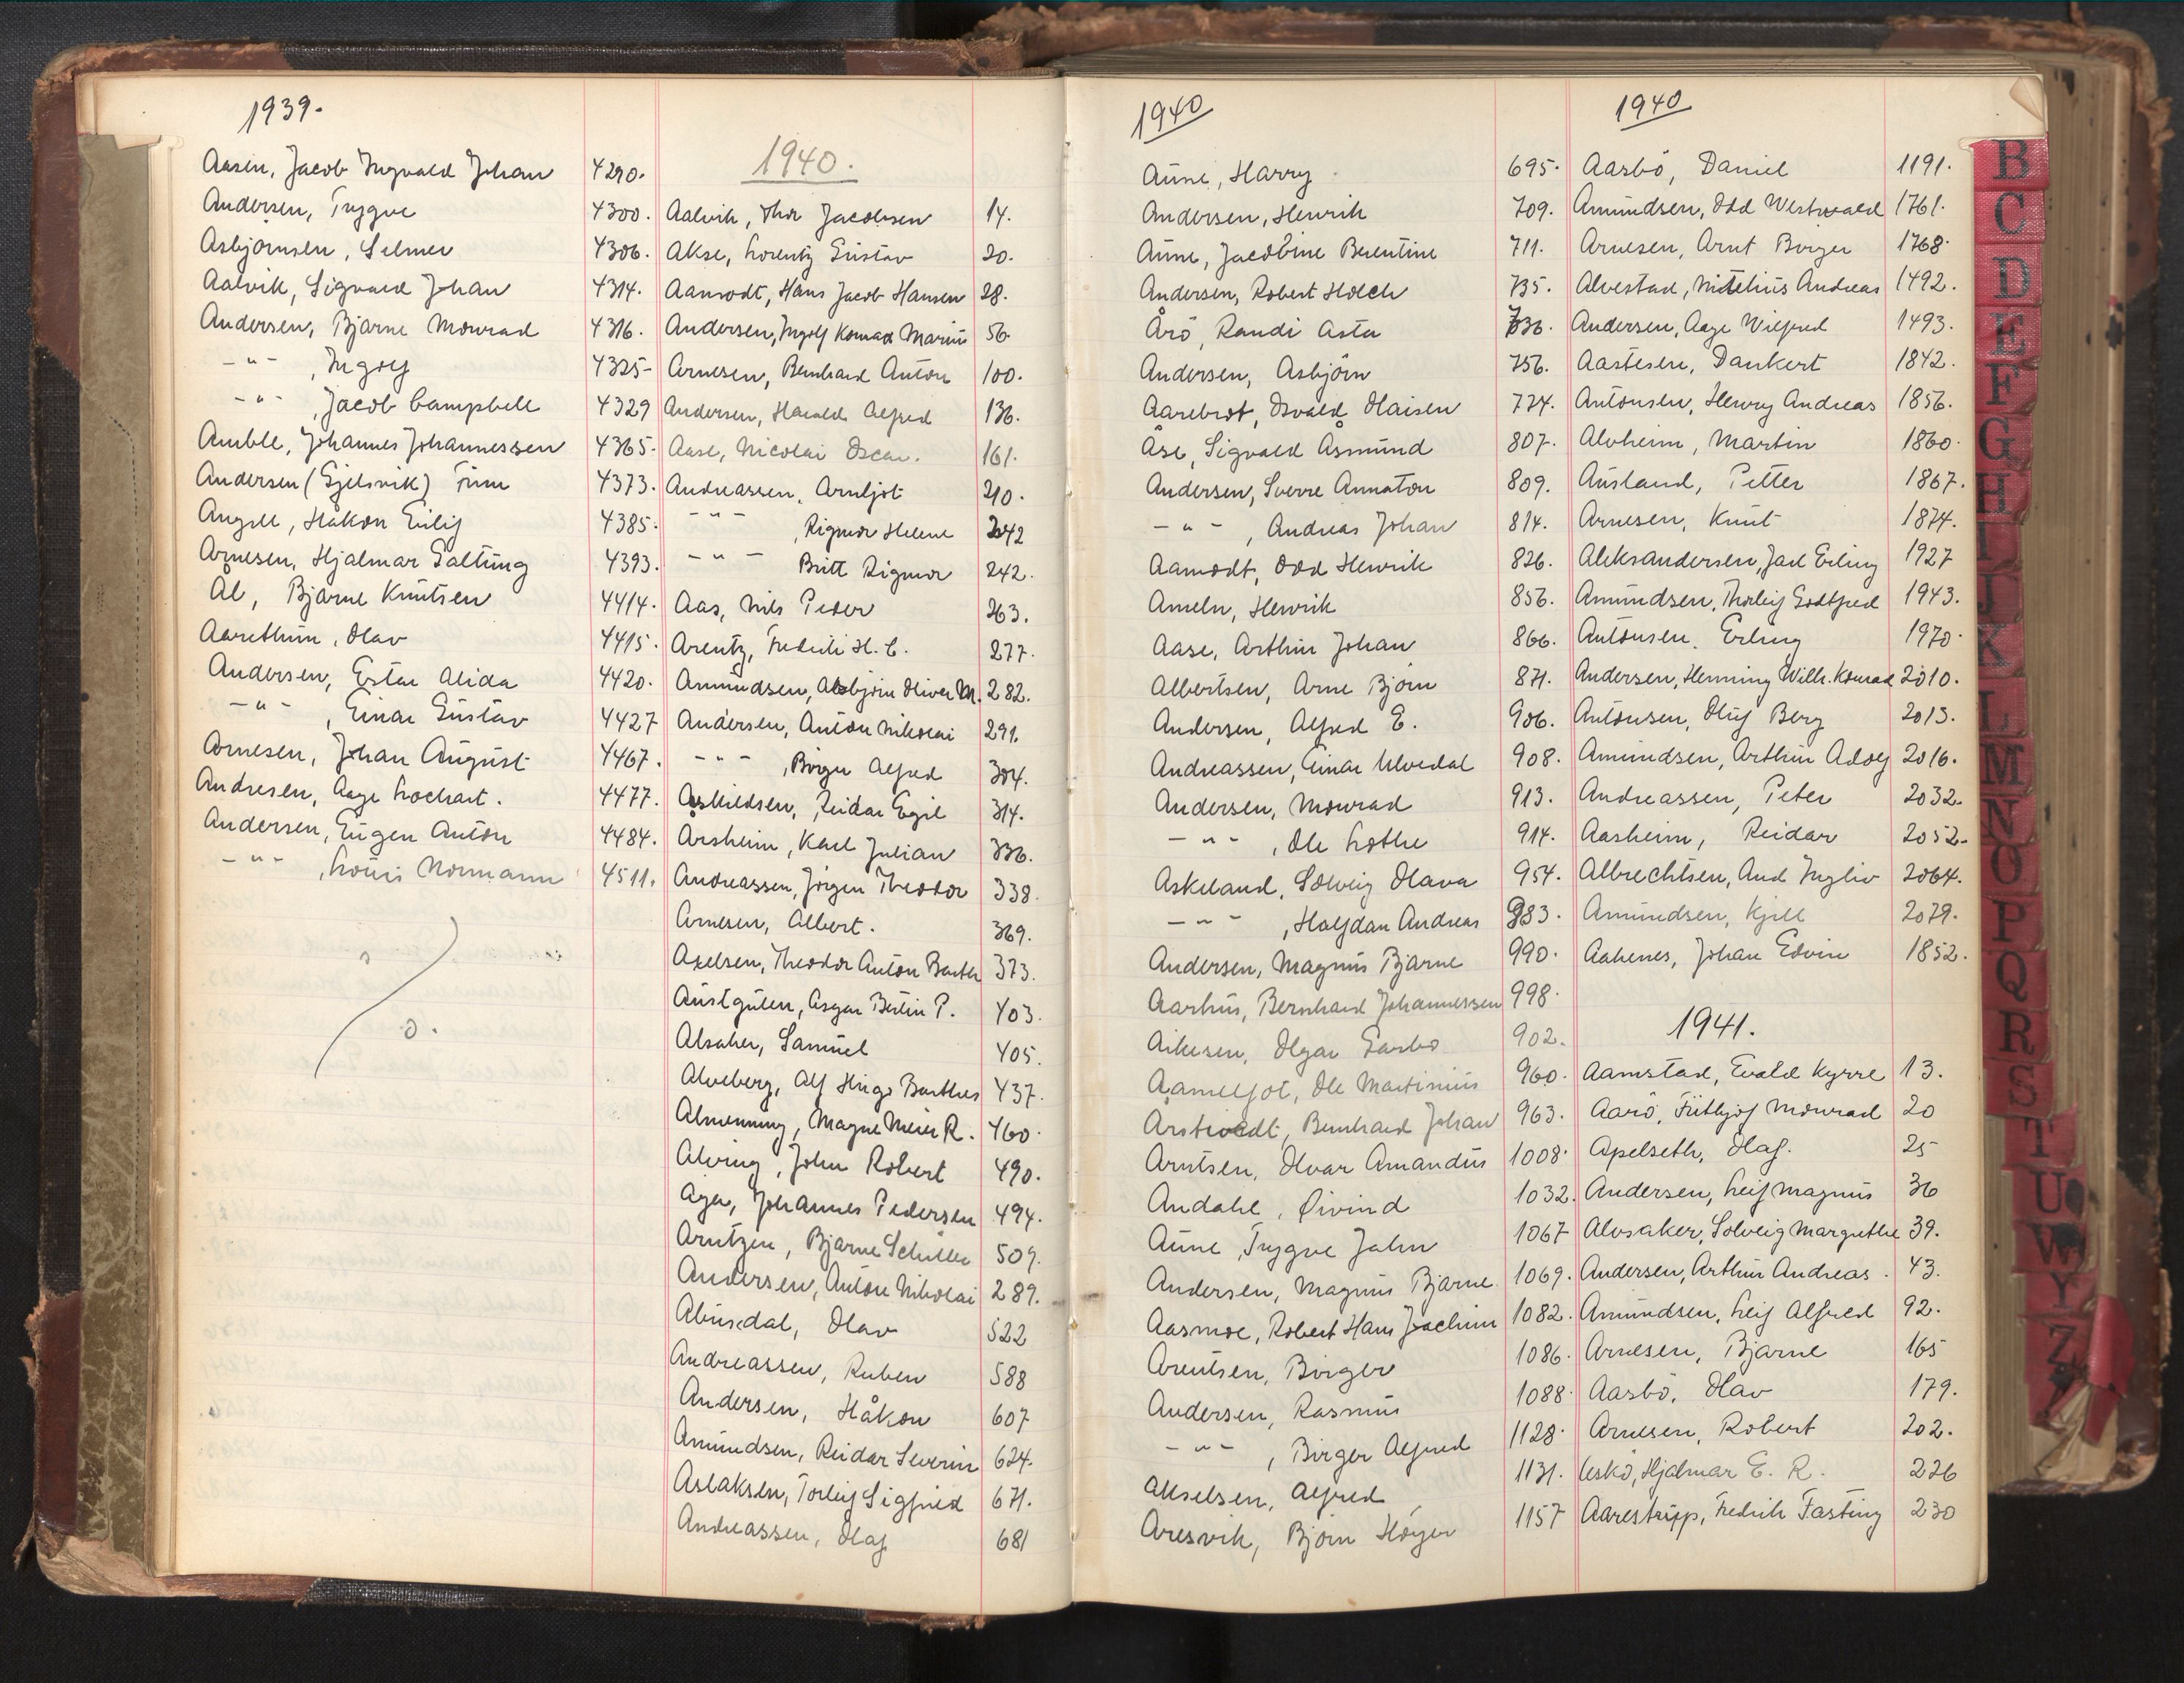 1939.
Aasen, Jacob Ingvald Johan 4290.
Andersen, Trygve 4300.
Asbjørnsen, Selmer 4306.
Aalvik, Sigvard Johan 4314.
Andersen, Bjarne Monrad 4316.
-"- , Ingolf 4325-
-"- , Jacob Campbell 4329
Amble, Johannes Johannessen 4365.
Andersen (Gjelsvik) Finn 4373.
Angell, Håkon Eilif 4385.
Arnesen, Hjalmar Galtung 4393.
Ål, Bjarne Knutsen 4414.
Aarethun, Olav 4415.
Andersen, Ester Alida 4420.
-"- , Einar Gustav 4427
Arnesen, Johan August 4467.
Andresen, Aage Lockert. 4477.
Andersen, Eugen Anton 4484.
-"- , Louis Normann 4511.
1940.
Aalvik, Thor Jacobsen 14.
Akse, Lorentz Gustav 20.
Aamodt, Hans Jacob Hansen 28.
Andersen, Ingolf Konrad Marius 56.
Arnesen, Bernhard Anton 100.
Andersen, Harald Alfred 136.
Aase, Nicolai Oscar. 161.
Andreassen, Arnljot 210.
-"- , Rigmor Helene 242
-"- Britt Rigmor 242.
Aas, Nils Peder 263.
Arentz, Fredrik H. C. 277.
Amundsen, Asbjørn Oliver M. 282.
Andersen, Anton Nikolai 291.
-"- , Birger Alfred 304.
Askildsen, Reidar Egil 314.
Årsheim, Karl Julian 336.
Andreassen, Jørgen Theodor 338.
Arnesen, Albert. 369.
Axelsen, Theodor Anton Barth 373.
Austgulen, Asgar Bertin P. 403.
Alsaker, Samuel 405.
Alveberg, Alf Hugo Barthes 437.
Almenning, Magne Meier R. 460.
Alving, John Robert 490.
Aga, Johannes Pedersen 494.
Arntzen, Bjarne Schiller 509.
Andersen, Anton Nikolai 289.
Alnesdal, Olav 522
Andreassen, Ruben 588
Andersen, Håkon 607
Amundsen, Reidar Severin 624.
Aslaksen, Torleif Sigfred 671.
Andreassen, Olaf 681
1940
Aune, Harry 695.
Andersen, Henrik 709.
Aune, Jacobine Berentine 711.
Andersen, Robert Holck 735.
Årø, Randi Asta 736.
Andersen, Asbjørn 756.
Aarebrot, Osvald Olaisen 774.
Åse, Sigvald Åsmund 807.
Andersen, Sverre Annaton 809.
-"- , Andreas Johan 814.
Aamodt, Odd Henrik 826.
Ameln, Henrik 856.
Aase, Arthur Johan 866.
Albertsen, Arne Bjørn 871.
Andersen, Alfred E. 906.
Andreassen, Einar Ulvedal 908.
Andersen, Monrad 913.
-"- , Ole Lothe 914.
Askeland, Solveig Olava 954.
-"- , Halfdan Andreas 983.
Andersen, Magnus Bjarne 990.
Aarhus, Bernhard Johannessen 998.
Aikesen, Olgar Garbo 902.
Aameljot, Ole Martinius 960.
Årstvedt, Bernhard Johan 963.
Arntsen, Olvar Amandus 1008.
Andahl, Øivind 1032.
Aune, Trygve John 1067
Andersen, Magnus Bjarne 1069.
Aasmoe, Robert Hans Joachim 1082.
Arentsen, Birger 1086.
Andersen, Rasmus 1088.
-"- , Birger Alfred 1128.
Akselsen, Alfred 1131.
Aresvik, Bjørn Høyer 1157
1940
Aasbø, Daniel 1191.
Amundsen, Odd Westwald 1761.
Arnesen, Arnt Birger 1768.
Alvestad, Mitelius Andreas 1492.
Andersen, Aage Wilfred 1493.
Aastesen, Dankert 1842.
Antonsen, Henry Andreas 1856.
Alvheim, Martin 1860.
Ausland, Petter 1867.
Arnesen, Knut 1874.
Aleksandersen, Jarl Erling 1927
Amundsen, Thorleif Godtfred 1943.
Antonsen. Erling 1970.
Andersen, Henning Wilh. Konrad 2010.
Antonsen, Oluf Berg 2013.
Amundsen, Arthur Adolf 2016.
Andreassen, Peter 2032.
Aasheim, Reidar 2052.
Albrechtsen, Aud Ingliv 2064.
Amundsen, Kjell 2079.
Aakenes, Johan Edvin 1852.
1941.
Aamstad, Evald Kyrre 13.
Aarø, Frithjof Monrad 20
Apelseth, Olaf. 25
Andersen, Leif Magnus 36
Alvsaker, Solveig Margrethe 39.
Andersen, Arthur Andreas. 43.
Amundsen, Leif Alfred 92.
Arnesen, Bjarne 165
Aasbø, Olav 179.
Arnesen, Robert 202.
Askø, Hjalmar E. R. 226
Aarestrupp, Fredrik Fasting 230
B
C
D
E
F
G
H
I
J
K
L
M
N
O
P
Q
R
S
T
U
W
Y
Z